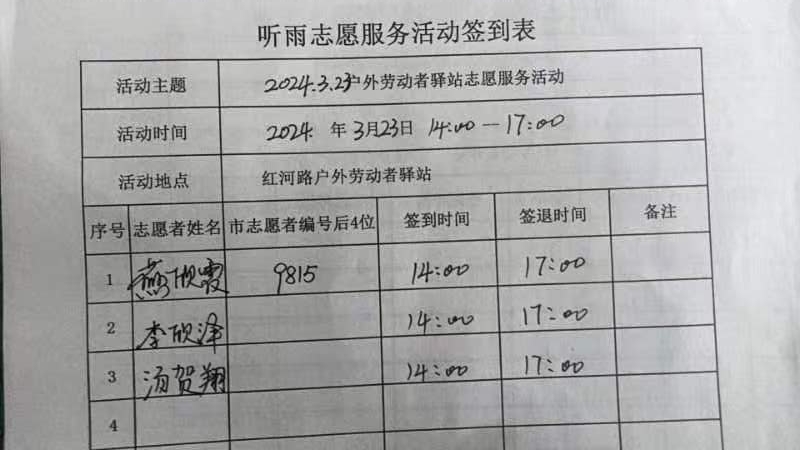 听雨志愿服务活动签到表
活动主题 2024.3.23户外劳动者驿站志愿服务活动
活动时间 2024. 年 3月23日 14:00 — 17:00
活动地点 红河路户外劳动者驿站
序号 志愿者姓名 市志愿者编号后4位 签到时间 签退时间 备注
1 燕欣霞 9815 14:00 17:00
2 李欣泽 14:00 17:00
3 汤贺翔 14:00 17:00
4